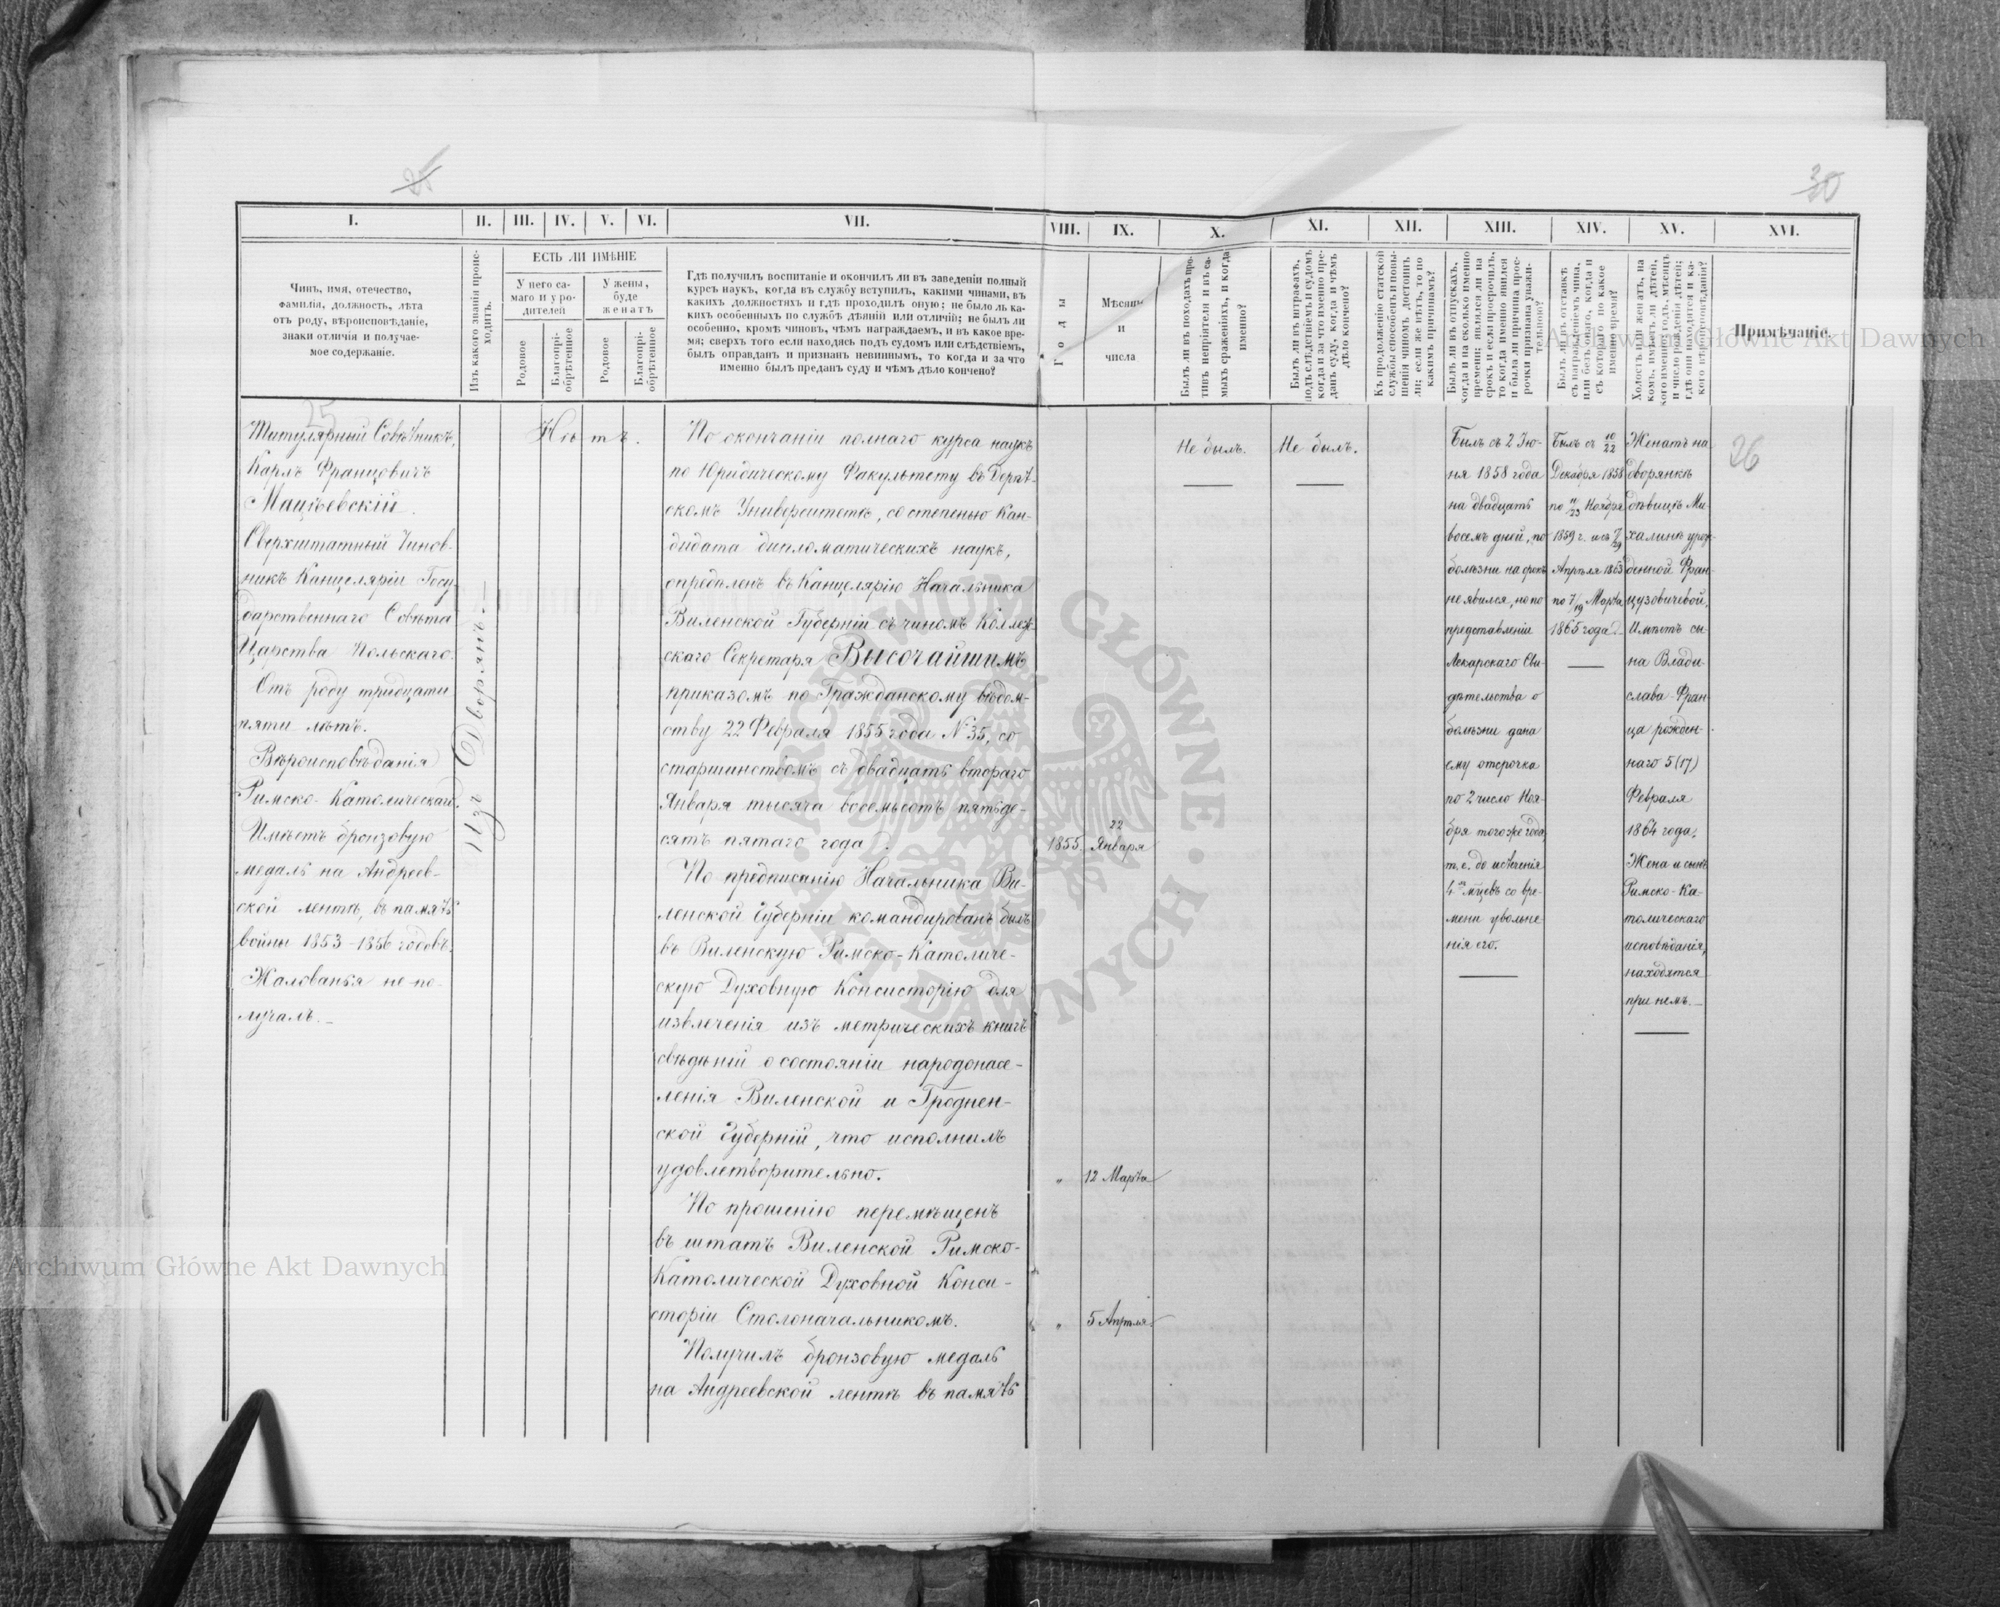 25
30
I.
II.
III.
IV.
V.
VI.
VII.
VIII.
IX.
X.
XI.
XII.
XIII.
XIV.
XV.
XVI.
Чинъ, имя, отечество,
фамилія, должность, лѣта
отъ роду, вѣроисповѣданіе,
знаки отличія и получае-
мое содержаніе.
Изъ какого званія проис-
ходитъ.
ЕСТЬ ЛИ ИМѢНІЕ
У него са-
маго и у ро-
дителей
У жены,
буде
женатъ
Родовое
Благопрі-
обрѣтенное
Родовое
Благопрі-
обрѣтенное
Гдѣ получилъ воспитаніе и окончилъ ли въ заведеніи полный
курсъ наукъ, когда въ службу вступилъ, какими чинами, въ
какихъ должностяхъ и гдѣ проходилъ оную; не было ль ка-
кихъ особенныхъ по службѣ дѣяній или отличій; не былъ ли
особенно, кромѣ чиновъ, чѣмъ награждаемъ, и въ какое вре-
мя; сверхъ того если находясь подъ судомъ или слѣдствіемъ,
былъ оправданъ и признанъ невиннымъ, то когда и за что
именно былъ преданъ суду и чѣмъ дѣло кончено?
Годы
Мѣсяцы
и
числа
Былъ ли въ походахъ про-
тивъ непріятеля и въ са-
мыхъ сраженіяхъ, и когда
именно?
Былъ ли въ штрафахъ,
подъ слѣдствіемъ и судомъ
когда и за что именно пре-
данъ суду, когда и чѣмъ
дѣло кончено?
Къ продолженію статской
службы способенъ и повы-
шенія чиномъ достоинъ
ли; если же нѣтъ, то по
какимъ причинамъ?
Былъ ли въ отпускахъ,
когда и на сколько именно
времени; являлся ли на
срокъ и если просрочилъ,
то когда именно явился
и была ли причина прос-
рочки признана уважи-
тельною?
Былъ ли въ отставкѣ
съ награжденіемъ чина,
или безъ онаго, когда и
съ котораго по какое
именно время?
Холостъ или женатъ, на
комъ, имѣетъ ли дѣтей,
кого именно; годъ, мѣсяцъ
и число рожденія дѣтей;
гдѣ они находятся и ка-
кого вѣроисповѣданія?
Примѣчаніе.
25
Титулярный Совѣтникъ,
Карлъ Францовичъ
Мацѣевскій.
Сверхштатный Чинов-
никъ Канцеляріи Госу-
дарственнаго Совѣта
Царства Польскаго.
Отъ роду тридцати
пяти лѣтъ.
Вѣроисповѣданія
Римско-Католическаго.
Имѣетъ бронзовую
медаль на Андреев-
ской лентѣ, въ память
войны 1853-1856 годовъ.
Жалованья не по-
лучалъ.
Изъ Дворянъ.
Нѣтъ.
По окончаніи полнаго курса наукъ
по Юридическому Факультету въ Дерпт-
скомъ Университетѣ, со степенью Кан-
дидата дипломатическихъ наукъ,
опредѣленъ въ Канцелярію Начальника
Виленской Губерніи съ чиномъ Коллеж-
скаго Секретаря Высочайшимъ
приказомъ по Гражданскому вѣдом-
ству 22 Февраля 1855 года N 35, со
старшинствомъ съ двадцать втораго
Января тысяча восемьсотъ пятьде-
сятъ пятаго года.
1855.
22
Января
По предписанію Начальника Ви-
ленской Губерніи командированъ былъ
въ Виленскую Римско-Католиче-
скую Духовную Консисторію для
извлеченія изъ метрическихъ книгъ
свѣдѣній о состояніи народонасе-
ленія Виленской и Гроднен-
ской Губерній, что исполнилъ
удовлетворительно.
" 12 Марта
По прошенію перемѣщенъ
въ штатъ Виленской Римско-
Католической Духовной Конси-
сторіи Столоначальникомъ.
" 5 Апрѣля
Получилъ бронзовую медаль
на Андреевской лентѣ въ память
Не былъ.
Не былъ.
Былъ съ 2 Iю-
ня 1858 года
на двадцать
восемь дней, по
болѣзни на срокъ
не явился, но по
представленіи
Лекарскаго Сви-
дѣтельства о
болѣзни дана
ему отсрочка
по 2 число Ноя-
бря того же года,
т.е. до истеченія
4хъ мѣсцевъ со вре-
мени увольне-
нія его.
Былъ съ 10/22
Декабря 1858
по 11/23 Ноября
1859 г. и съ 7/19
Апрѣля 1863
по 7/19 Марта
1865 года.
Женатъ на
дворянкѣ
дѣвицѣ Ми-
халинѣ урож-
денной Фран-
цузовичевой,
Имѣетъ сы-
на Влади-
слава-Фран-
ца рожден-
наго 5 (17)
Февраля
1864 года.
Жена и сынъ
Римско-Ка-
толическаго
исповѣданія,
находятся
при немъ.
26
Archiwum Główne Akt Dawnych
Archiwum Główne Akt Dawnych
ARCHIWUM GŁÓWNE AKT DAWNYCH